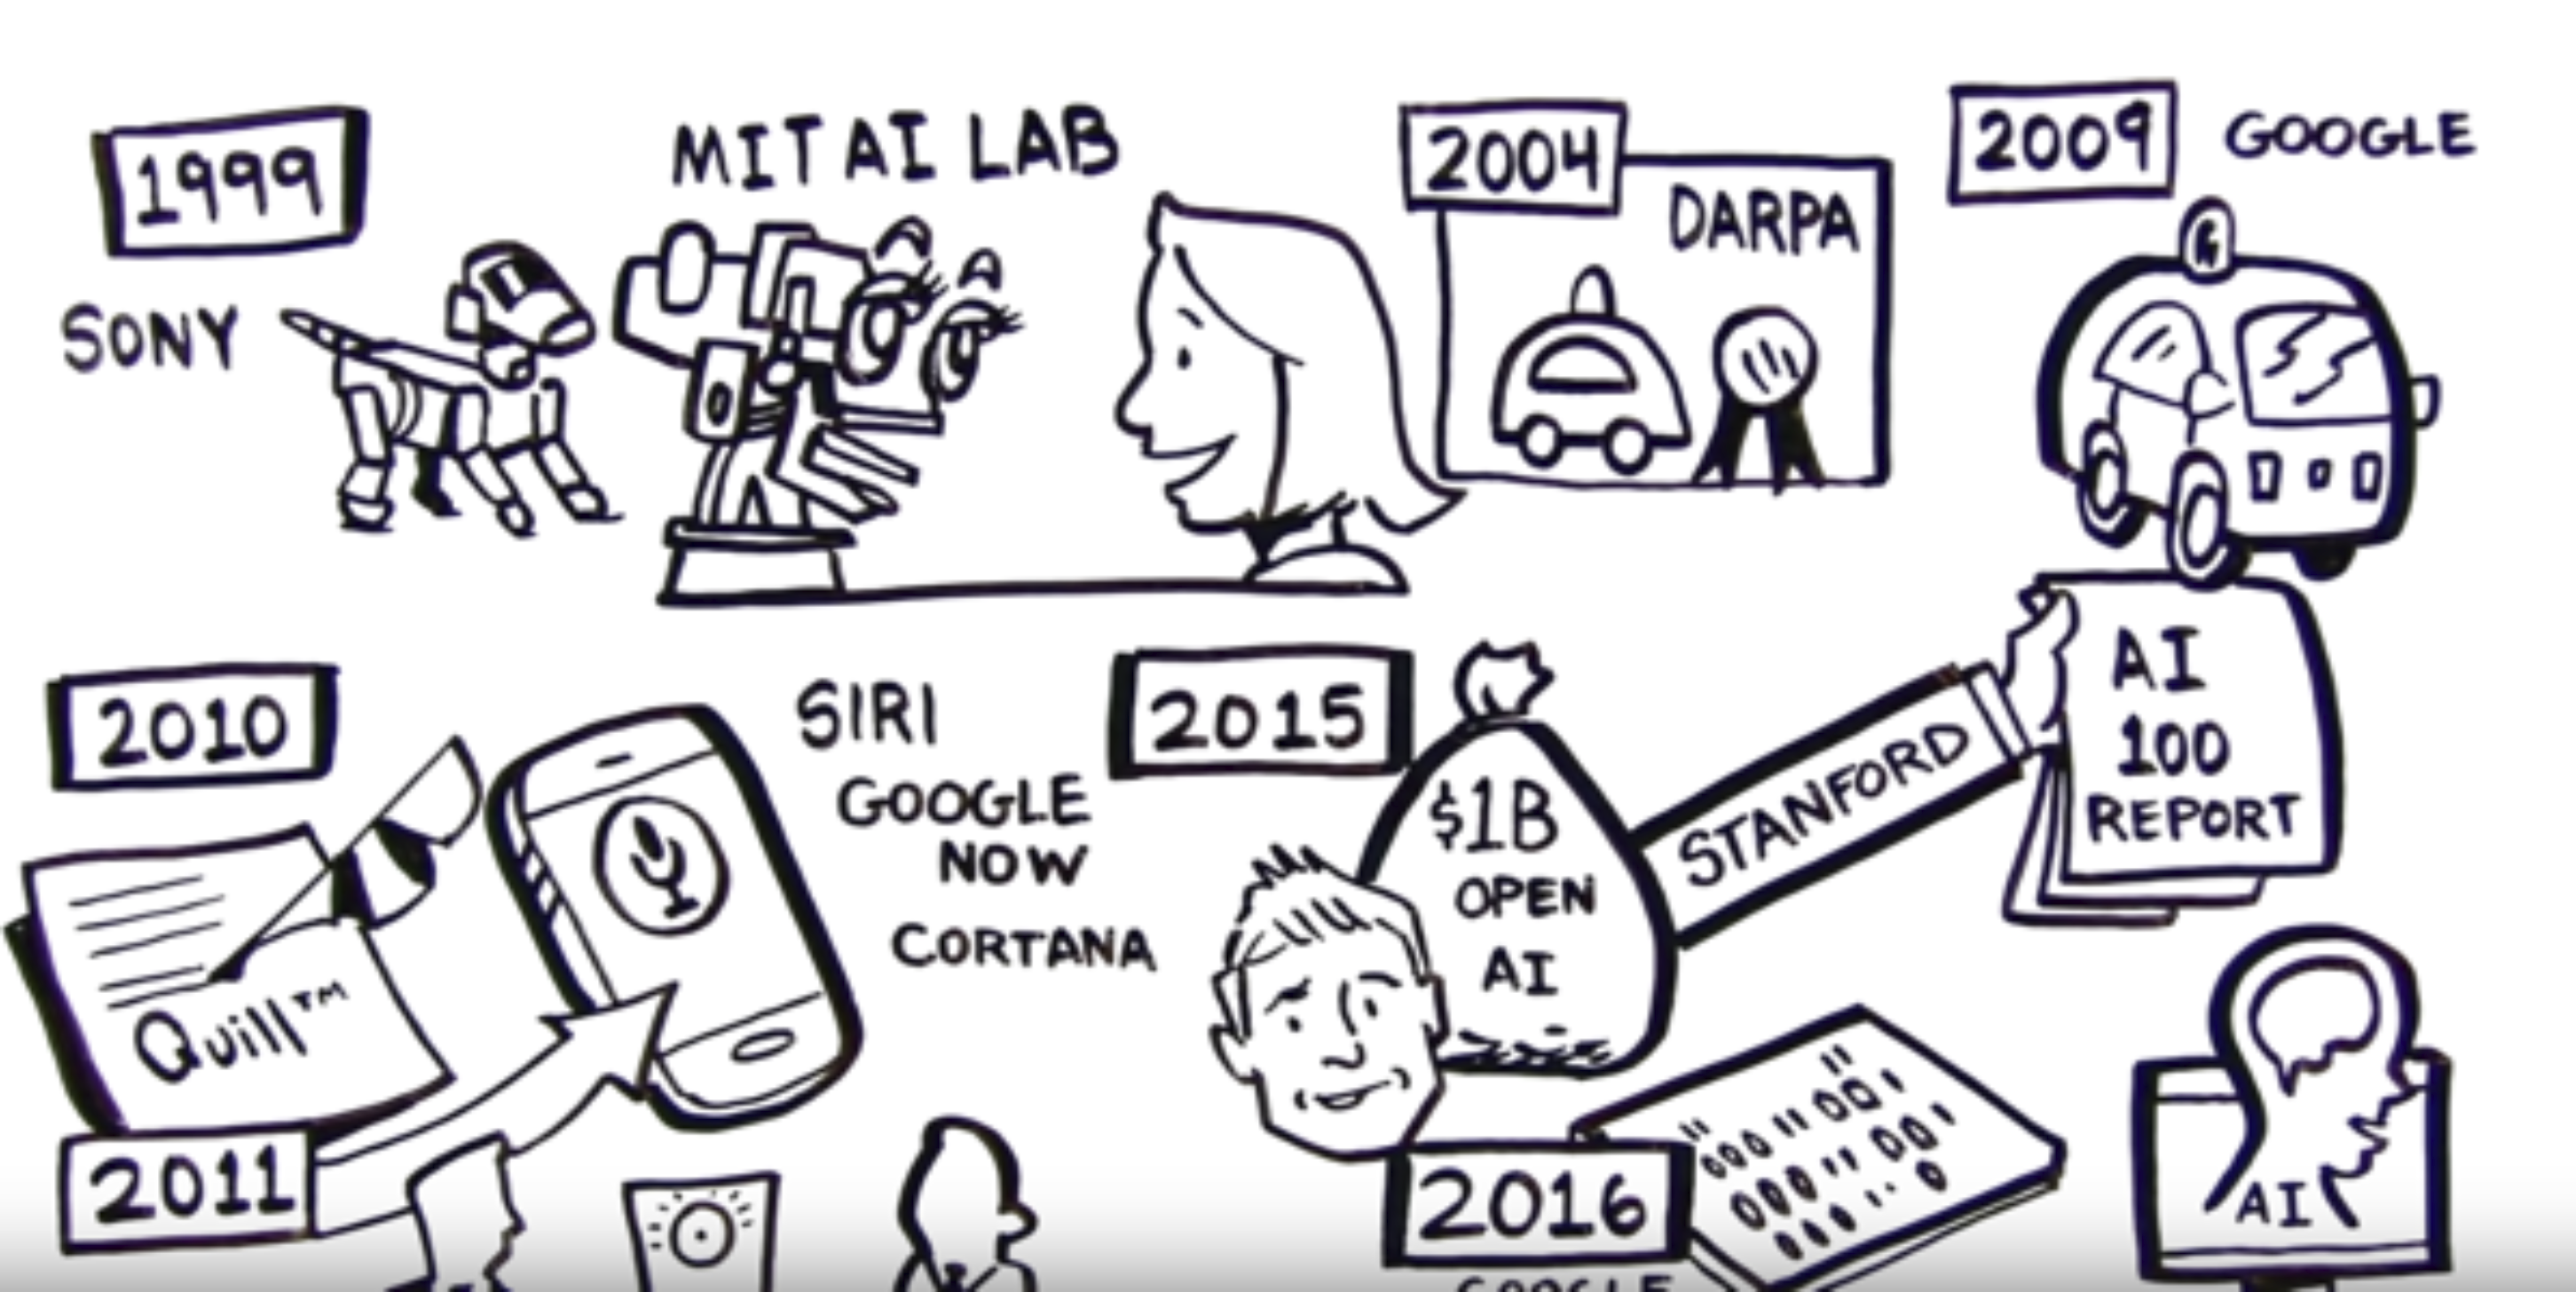 1999
SONY
MIT AI LAB
2004
DARPA
2009
GOOGLE
G
2010
Quill™
SIRI
GOOGLE
NOW
CORTANA
2015
$1B
OPEN
AI
STANFORD
AI
100
REPORT
2011
2016
GOOGLE
AI